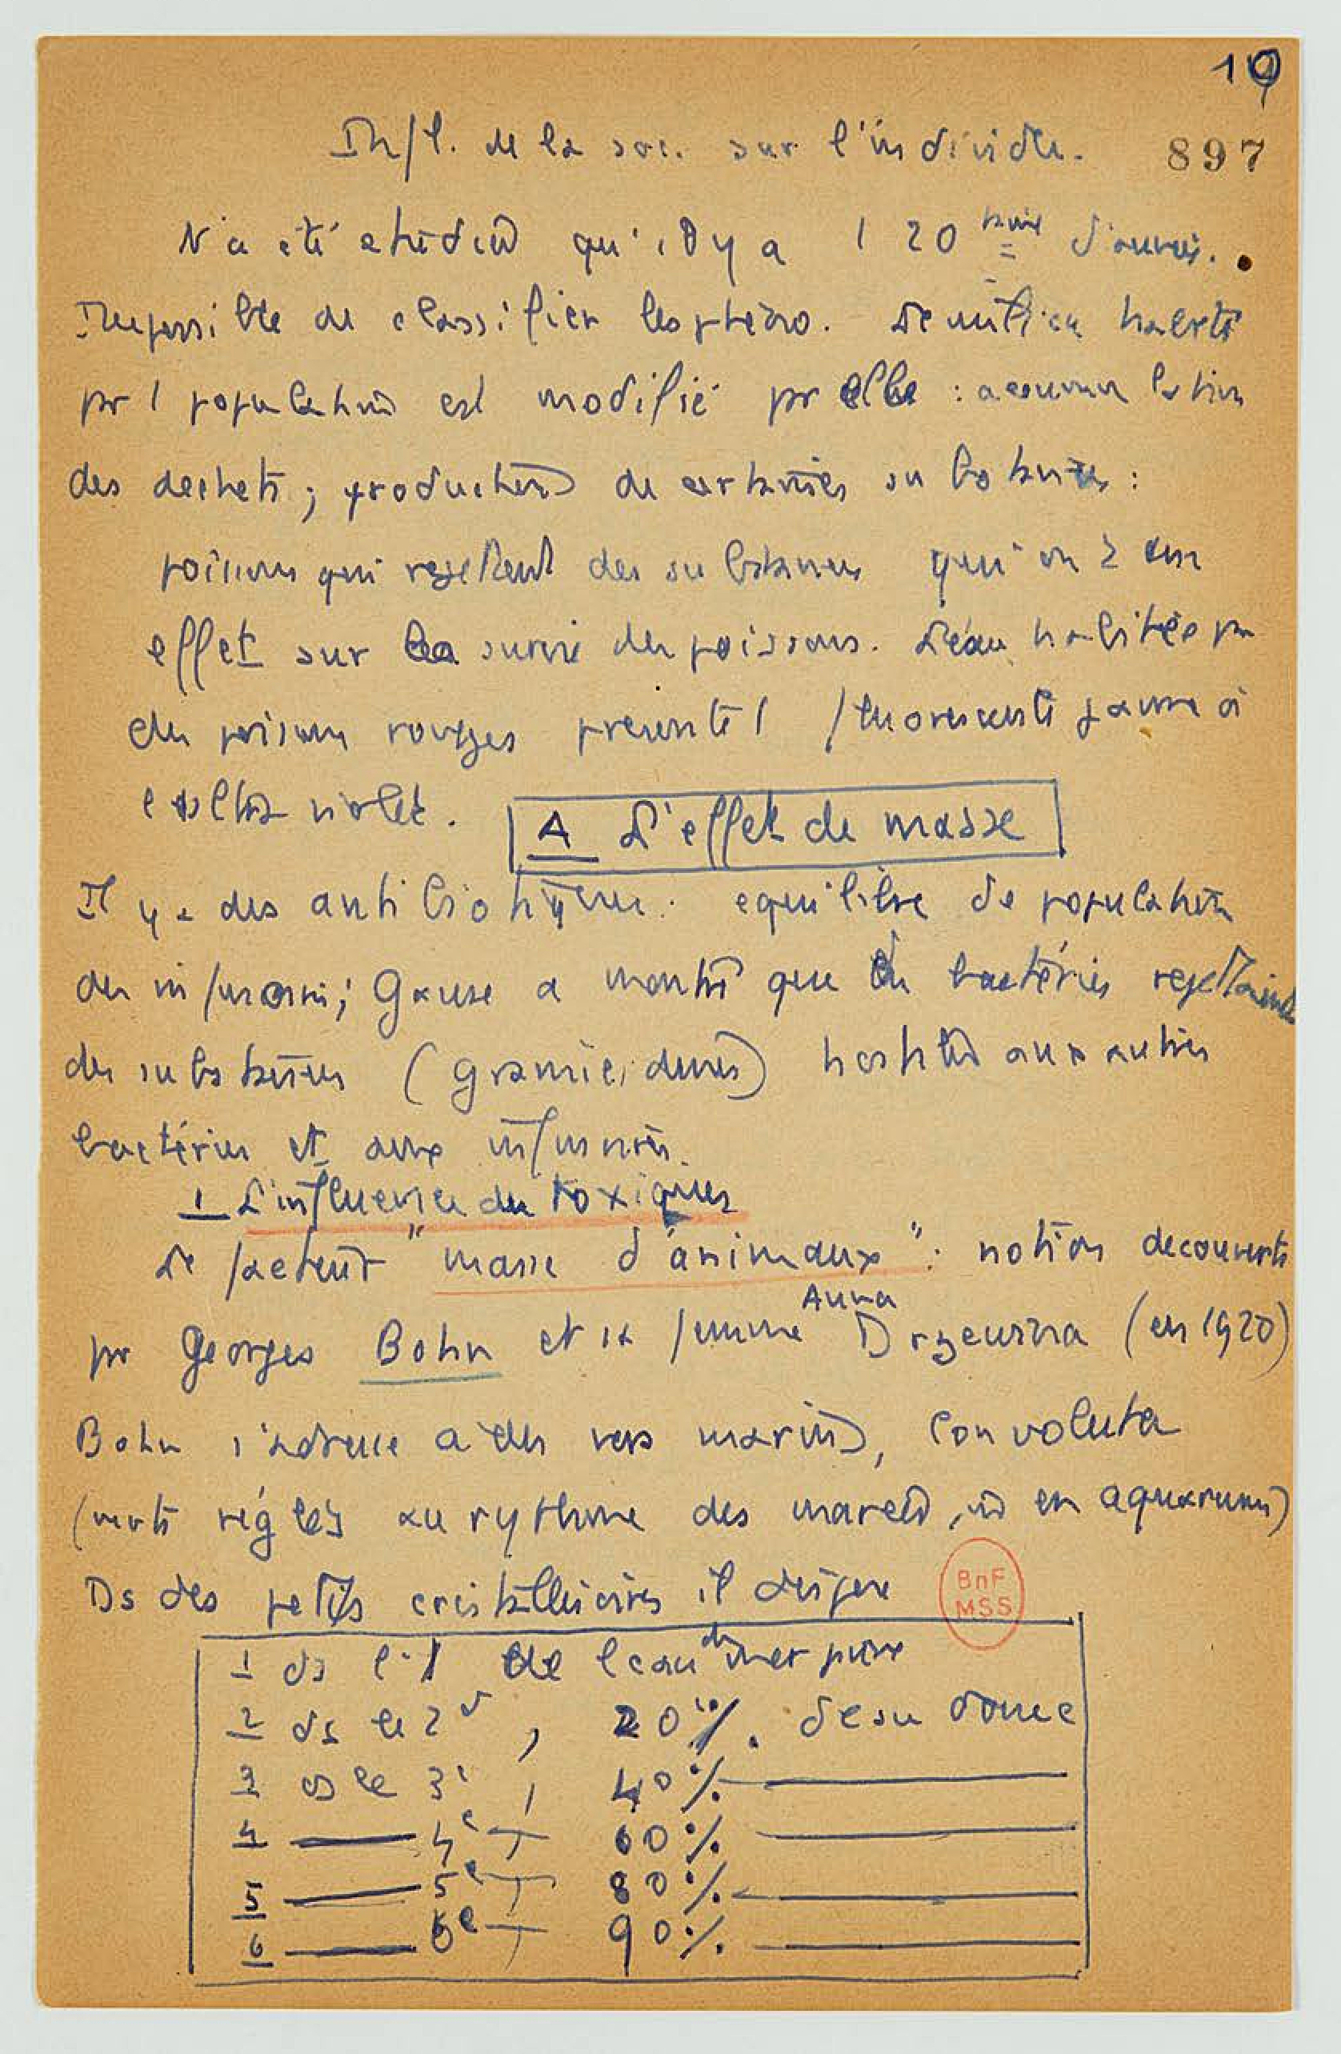 19
Infl. de la soc. sur l'individu.
897
N'a été étudiée qu'il y a 1 20taine d'années.
Impossible de classifier les phéno. Le milieu habité
pr 1 population est modifié pr elle : accumulation
des dechets ; production de certaines substances :
poissons qui rejettent des substances qui on 2 un
effet sur la survie des poissons. L'eau habitée pr
des poissons rouges presente 1 fluorescente jaune à
violet.
A L'effet de masse
Il y a des antibiotiques. equilibre de population
des infusoires ; Gause a montré que des bactéries rejettaient
des substances (gramicidines) hostiles aux autres
bactéries et aux infusoires.
1 L'influence des toxiques
Le facteur "masse d'animaux" : notion decouverte
pr Georges Bohn et sa femme Anna Drzewina (en 1920)
Bohn s'adresse à des vers marins, Convoluta
(verts réglés au rythme des marées, en aquarium)
Ds des petits cristallisoires il dispose
BnF
MSS
1 ds le 1 de l'eau de mer pure
2 ds le 2d, 20 %. d'eau douce
3 ds le 3e, 40 %
4 4e 60 %
5 5e 80 %
6 6e 90 %